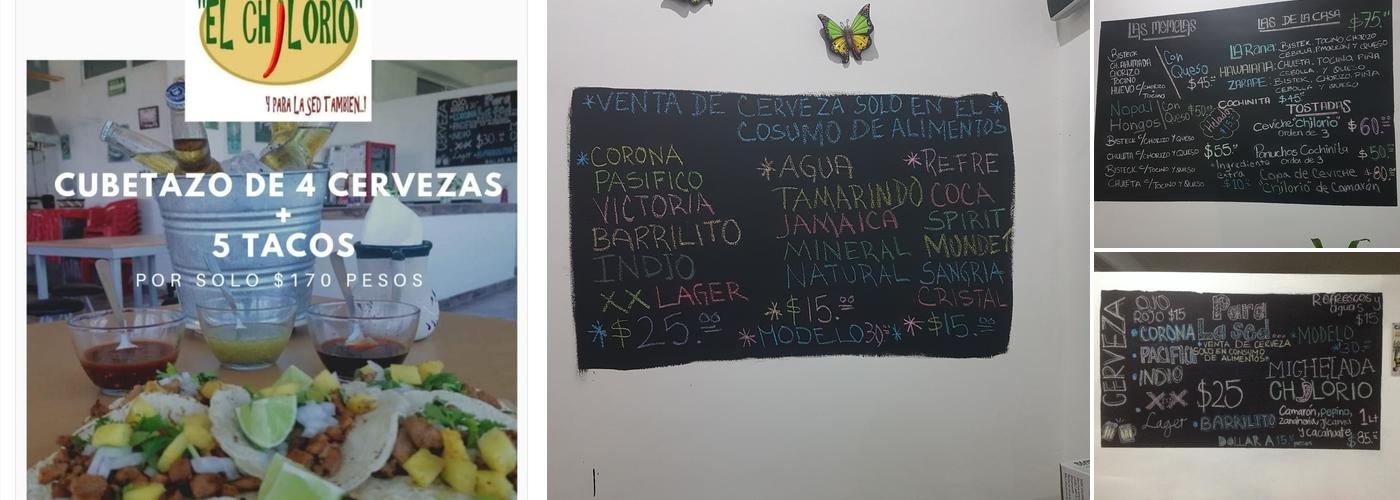 "EL CHILORIO"
Y PARA LA SED TAMBIEN..!
CUBETAZO DE 4 CERVEZAS
+
5 TACOS
POR SOLO $170 PESOS
*VENTA DE CERVEZA SOLO EN EL*
COSUMO DE ALIMENTOS
*CORONA
PASIFICO
VICTORIA
BARRILITO
INDIO
XX LAGER
*$25.00
*AGUA
TAMARINDO
JAMAICA
MINERAL
NATURAL
*$15.00
*MODELO 30.00*
*REFRE
COCA
SPIRIT
MUNDET
SANGRIA
CRISTAL
$15.00
LAS MEMELAS
BISTECK
CH. AHUMADA
CHORIZO
TOCINO
HUEVO C/CHORIZO
TOCINO
Con
Queso
$45.00
Nopal
Hongos
Con
Queso $50.00
BISTECK C/CHORIZO Y QUESO
CHULETA C/CHORIZO Y QUESO
BISTECK C/TOCINO Y QUESO
CHULETA C/TOCINO Y QUESO
$55.00
*Ingrediente
extra
$10.00
LAS DE LA CASA $75.00
LA Rana: BISTEK, TOCINO, CHORIZO
CEBOLLA, P.MORRON Y QUESO
HAWAIANA: CHULETA, TOCINO, PIÑA
CEBOLLA Y QUESO
ZARAPE: BISTECK, CHORIZO, PIÑA
CEBOLLA Y QUESO
COCHINITA $45.00
Helados
$15.00
TOSTADAS
Ceviche "Chilorio"
Orden de 3
$60.00
Panuchos Cochinita
Orden de 3
$50.00
Copa de Ceviche $80.00
"Chilorio" de Camarón
CERVEZA
OJO
ROJO $15
CORONA
PACIFICO
INDIO
XX
Lager
Para
La Sed...
*VENTA DE CERVEZA
SOLO EN CONSUMO
DE ALIMENTOS*
$25
BARRILITO
DOLLAR A 15.00 pesos
Refrescos y
aguas
$15
*MODELO
*30.00*
MICHELADA
CHILORIO
Camarón, pepino,
zanahoria, jícama
y cacahuate
1Lt
$85.00